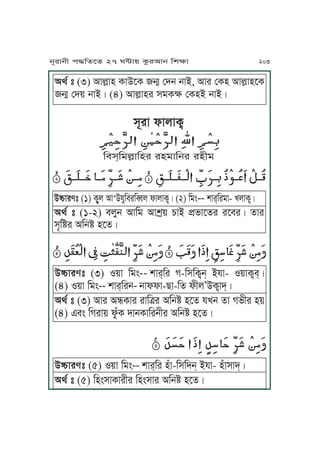 নূরানী পদ্ধতিতে ২৭ ঘন্টায় কুরআন শিক্ষা ২০৩
অর্থ ঃ (৩) আল্লাহ কাউকে জন্ম দেন নাই, আর কেহ আল্লাহকে
জন্ম দেয় নাই। (৪) আল্লাহর সমকক্ষ কেহই নাই।
সূরা ফালাক্ব
بِسْمِ اللهِ الرَّحْمٰنِ الرَّحِيْمِ
বিসমিল্লাহির রহমানির রহীম
قُلْ اَعُوْذُ بِرَبِّ الْفَلَقِ ۝ مِنْ شَرِّ مَا خَلَقَ ۝
উচ্চারণঃ (১) কুল আ'উযুবিরব্বিল ফালাক্ব। (২) মিং-- শার্‌রিমা- খলাক্ব।
অর্থ ঃ (১-২) বলুন আমি আশ্রয় চাই প্রভাতের রবের। তার
সৃষ্টির অনিষ্ট হতে।
وَمِنْ شَرِّ غَاسِقٍ اِذَا وَقَبَ ۝ وَمِنْ شَرِّ النَّفّٰثٰتِ فِى الْعُقَدِ ۝
উচ্চারণঃ (৩) ওয়া মিং-- শার্‌রি গ-সিক্বিন্ ইযা- ওয়াক্বব্।
(৪) ওয়া মিং-- শার্‌রিন- নাফফা-ছা-তি ফীল'উক্বাদ্।
অর্থ ঃ (৩) আর অন্ধকার রাত্রির অনিষ্ট হতে যখন তা গভীর হয়
(৪) এবং গিরায় ফুঁক দানকারিনীর অনিষ্ট হতে।
وَمِنْ شَرِّ حَاسِدٍ اِذَا حَسَدَ ۝
উচ্চারণঃ (৫) ওয়া মিং-- শার্‌রি হাঁ-সিদিন্ ইযা- হাঁসাদ্।
অর্থ ঃ (৫) হিংসাকারীর হিংসার অনিষ্ট হতে।